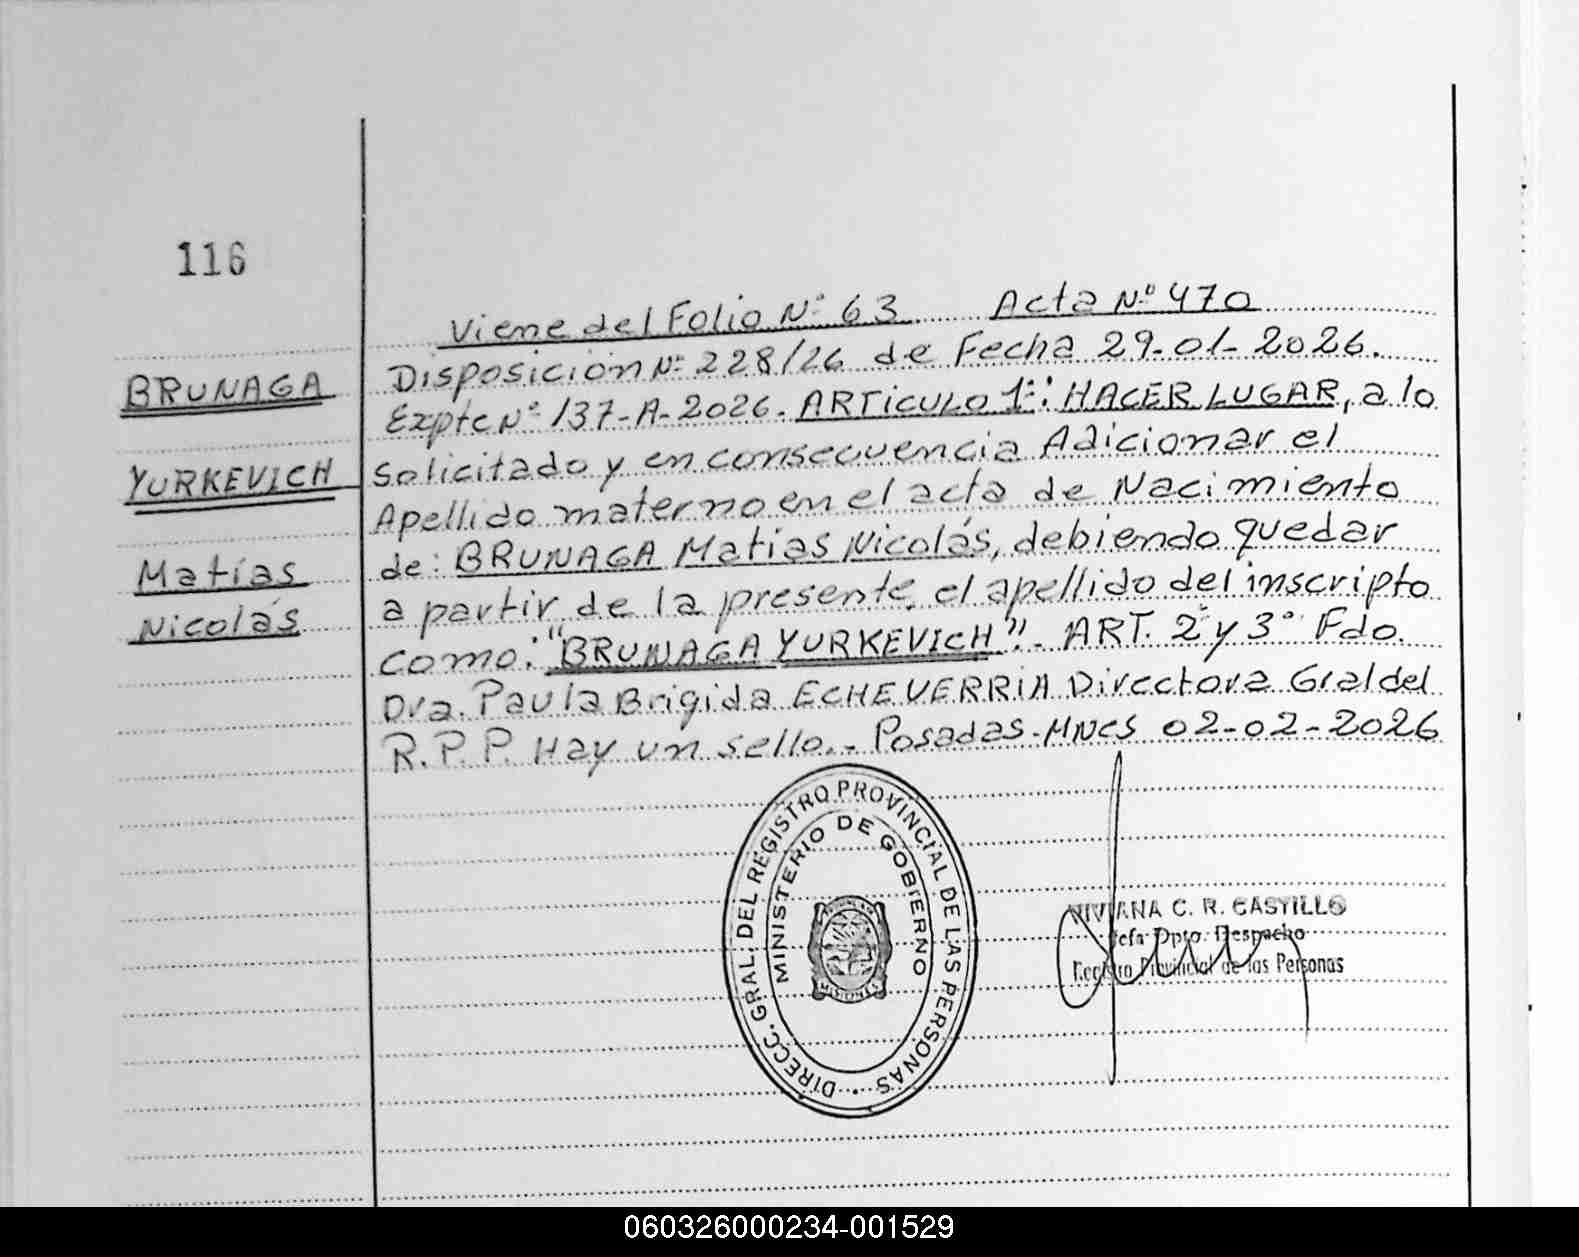 116
Viene del Folio Nº 63 Acta Nº 470
BRUNAGA
YURKEVICH
Matías
Nicolás
Disposición Nº 228/26 de Fecha 29-01-2026.
Expte Nº 137-A-2026. ARTICULO 1º: HACER LUGAR, a lo
Solicitado y en consecuencia Adicionar el
Apellido materno en el acta de Nacimiento
de: BRUNAGA Matías Nicolás, debiendo quedar
a partir de la presente, el apellido del inscripto
como: "BRUNAGA YURKEVICH". ART. 2º y 3º Fdo.
Dra. Paula Brigida ECHEVERRIA Directora Gral del
R.P.P. Hay un sello.- Posadas-Mnes 02-02-2026
DIRECC. GRAL. DEL REGISTRO PROVINCIAL DE LAS PERSONAS
MINISTERIO DE GOBIERNO
MISIONES
VIVIANA C. R. CASTILLO
Jefa Dpto. Despacho
Registro Provincial de las Personas
060326000234-001529